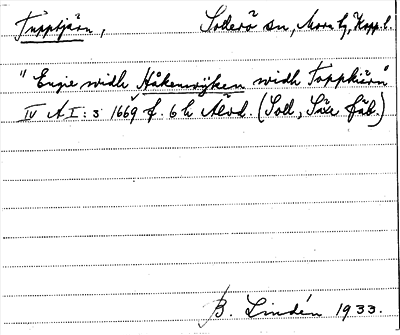 Tupptjärn, Sollerö sn, Mora tg, Kopp. l.
"Engie widh Håkenwijken widh Toppkiärn"
IV A I: 5 1669 f. 6 b Älvd. (Soll, Säx fäb.)
B. Lindén 1933.